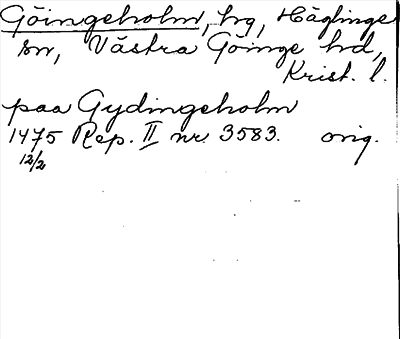 Göingeholm, hg, Häglinge
sn, Västra Göinge hd,
Krist. l.
paa Gydingeholm
1475 Rep. II nr. 3583. orig.
12/2